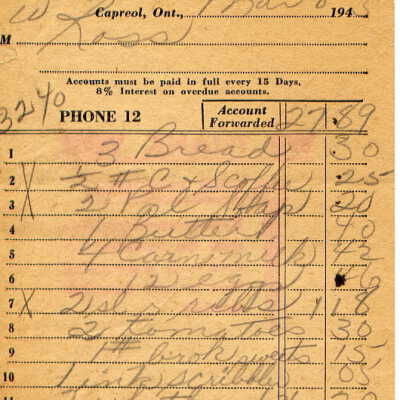 Capreol, Ont., Mar 194
M Ross
Accounts must be paid in full every 15 Days,
8% Interest on overdue accounts.
3240 PHONE 12 Account Forwarded 27 89
1 3 Bread 30
2 X ½ # C & S Coffee 25
3 2 Pal Soap 20
4 1 Butter 40
5 4 Carn milk 42
6 12 eggs
7 X 2 18
8 2 Tomatoes 30
9 1# brok sweets 15
10 1 ink scribbler 05